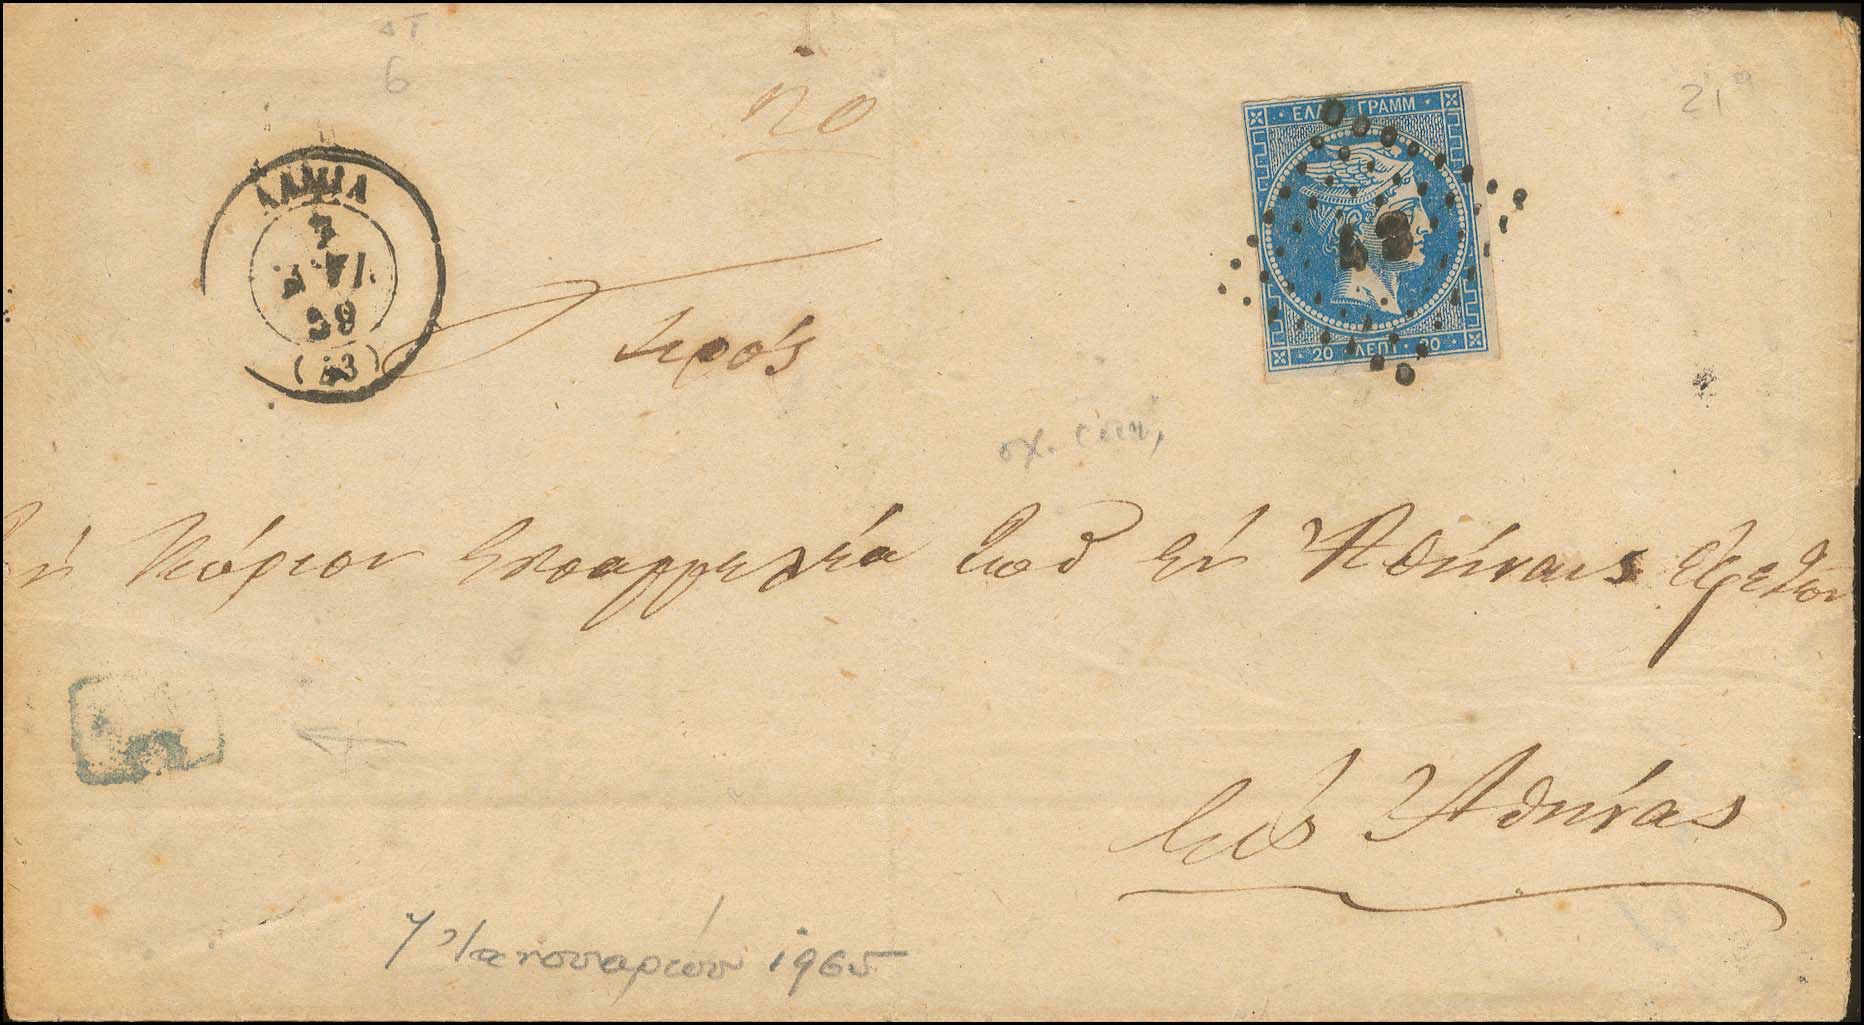 ΔΤ
6
20
21
ΛΑΜΙΑ
7
ΙΑΝ.
(53)
ΕΛΛ ΓΡΑΜΜ
20 ΛΕΠΤ. 20
Πρός
Κύριον Εἰσαγγελέα τῶν ἐν Ἀθήναις
Εἰς Ἀθήνας
7 Ἰανουαρίου 1965